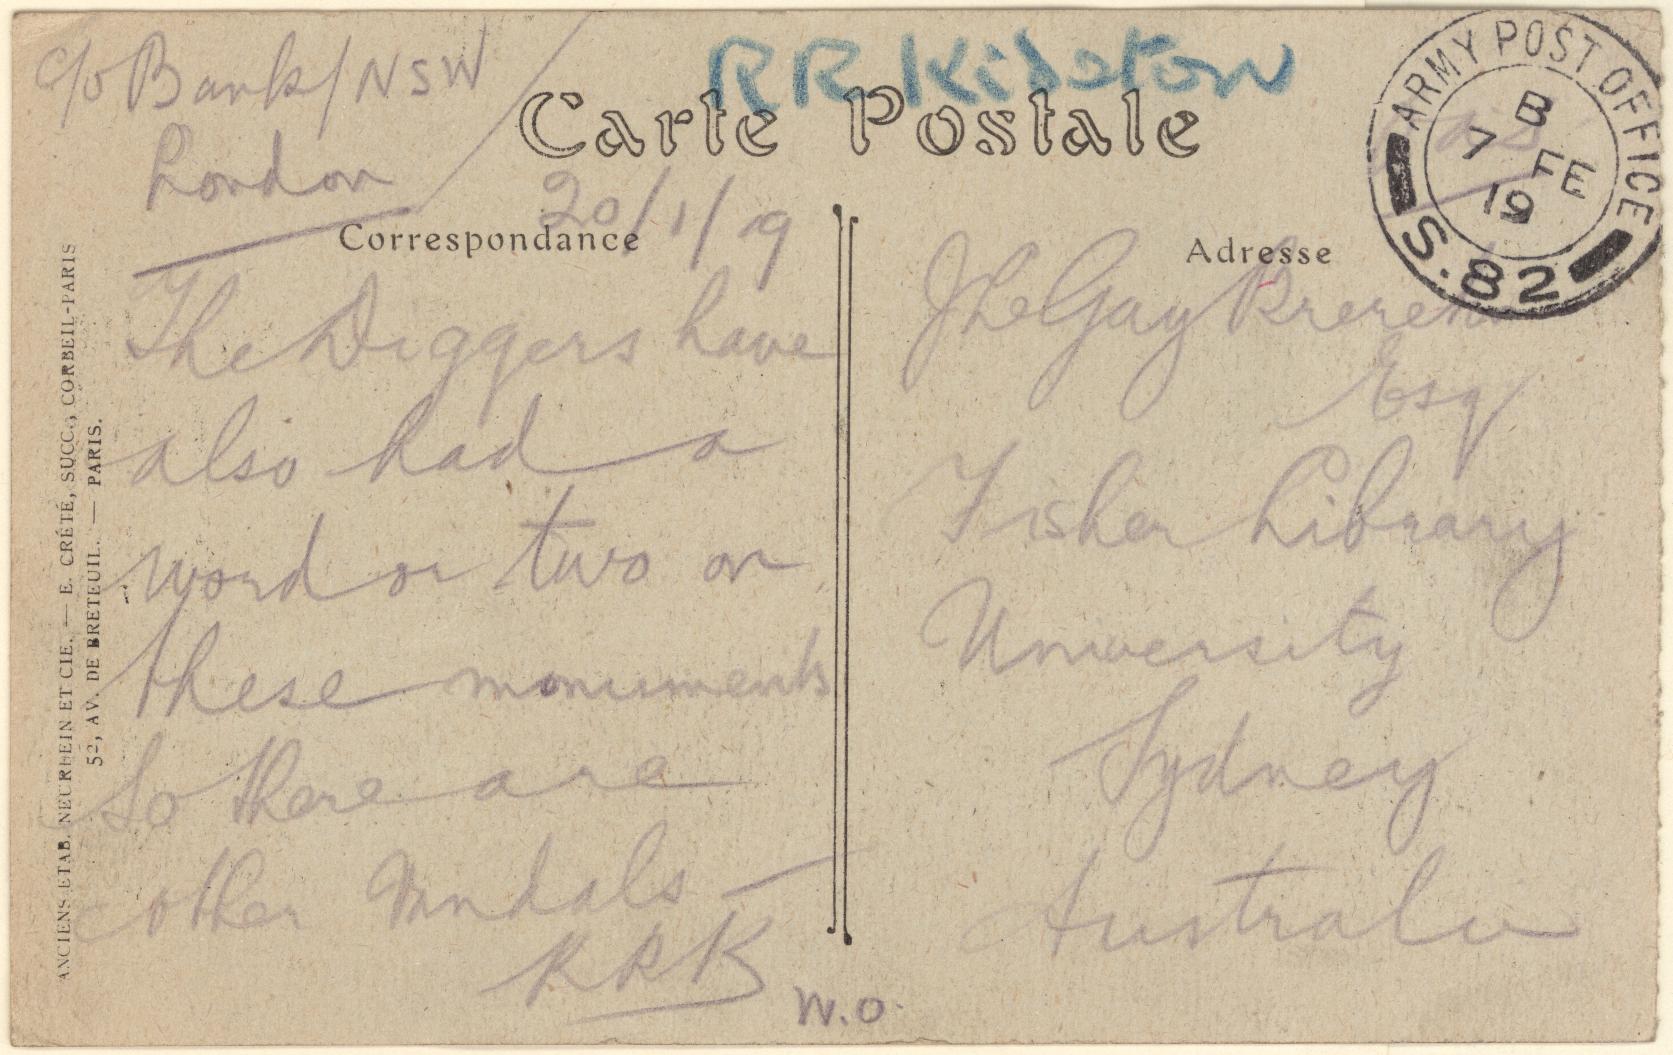 c/o Bank/NSW
London
20/1/19
RR Kidston
Carte Postale
Correspondance
Adresse
ARMY POST OFFICE
B
7 FE
19
S.82
The Diggers have
also had a
word or two on
these monuments
So there are
other Vandals —
RRK
W.O.
J Le Gay Brereton
Esq
Fisher Library
University
Sydney
Australia
ANCIENS ETAB. NEURDEIN ET CIE. — E. CRÉTÉ, SUCC., CORBEIL-PARIS
52, AV. DE BRETEUIL. — PARIS.